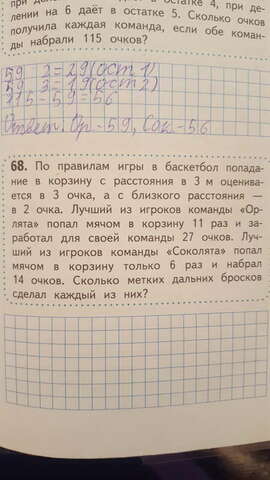 при делении на
в остатке 4, при де-
лении на 6 даёт в остатке 5. Сколько очков
получила каждая команда, если обе коман-
ды набрали 115 очков?
59 2=29(ост1)
59 3=19(ост2)
115-59=56
Ответ: Ор.-59, Сок.-56
68. По правилам игры в баскетбол попада-
ние в корзину с расстояния в 3 м оценива-
ется в 3 очка, а с близкого расстояния —
в 2 очка. Лучший из игроков команды «Ор-
лята» попал мячом в корзину 11 раз и за-
работал для своей команды 27 очков. Луч-
ший из игроков команды «Соколята» попал
мячом в корзину только 6 раз и набрал
14 очков. Сколько метких дальних бросков
сделал каждый из них?